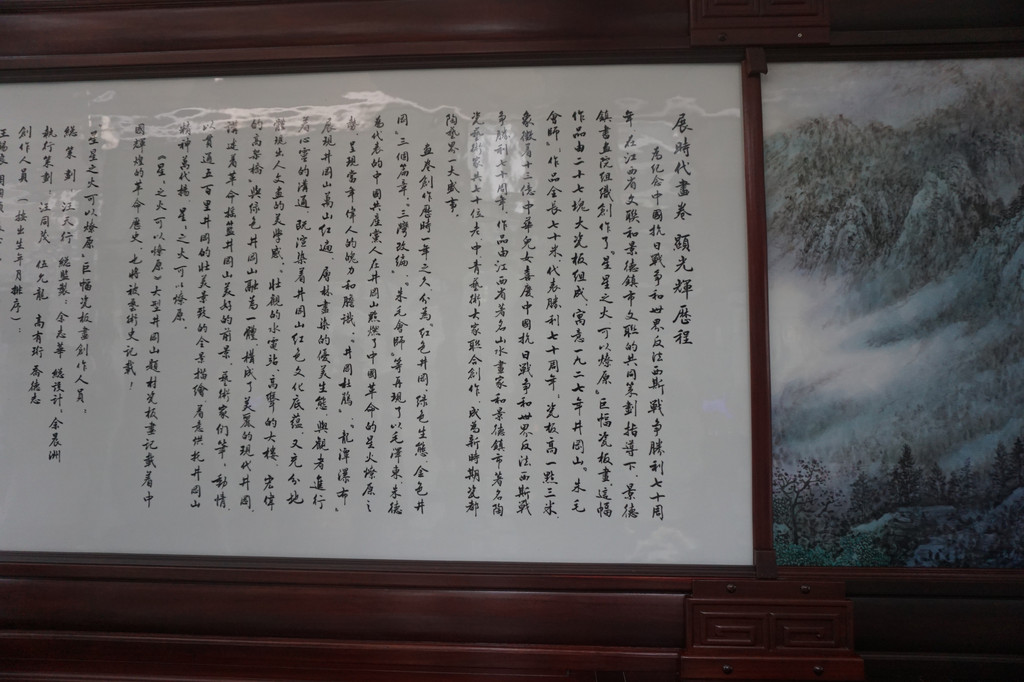 展時代畫卷 顯光輝歷程
為紀念中國抗日戰爭和世界反法西斯戰爭勝利七十周
年，在江西省文聯和景德鎮市文聯的共同策劃指導下，景德
鎮書畫院組織創作了《星星之火可以燎原》巨幅瓷板畫。這幅
作品由二十七塊大瓷板組成，寓意一九二七年井岡山，朱毛
會師，作品全長七十米，代表勝利七十周年，瓷板高一點三米，
象徵着十三億中華兒女喜慶中國抗日戰爭和世界反法西斯戰
爭勝利七十周年，作品由江西省著名山水畫家和景德鎮市著名陶
瓷藝術家共七十位老中青藝術大家聯合創作，成為新時期瓷都
陶藝界一大盛事。
畫卷創作歷時一年之久，分為《紅色井岡、綠色生態、金色井
岡》三個篇章。《三灣改編》、《朱毛會師》等再現了以毛澤東朱德
為代表的中國共產黨人在井岡山點燃了中國革命的星火燎原之
勢，呈現當年偉人的魄力和膽識。《井岡杜鵑》、《龍潭瀑布》
展現井岡山萬山紅遍、層林盡染的優美生態，與觀者進行
着心靈的溝通，既渲染着井岡山紅色文化底蘊，又充分地
體現出人文畫的美學感。《壯觀的水電站、高聳的大樓、宏偉
的高架橋》與綠色井岡山融為一體，構成了美麗的現代井岡，
講述着革命搖籃井岡山美好的前景，藝術家們筆，動情，
以貫通五百里井岡的壯美景致的全景描繪着意烘托井岡山
精神萬代揚，星星之火可以燎原。
《星星之火可以燎原》大型井岡山題材瓷板畫記載着中
國輝煌的革命歷史，也將被藝術史記載！
《星星之火可以燎原》巨幅瓷板畫創作人員：
總策劃：汪天行 總監製：余志華 總設計：余晨洲
執行策劃：汪同茂 伍允龍 高有珩 喬德志
創作人員（按出生年月排序）：
王錫良